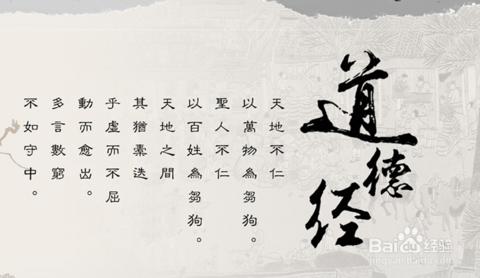 道德经
天地不仁
以萬物為芻狗。
聖人不仁
以百姓為芻狗。
天地之間
其猶橐迭
乎虛而不屈
動而愈出。
多言數窮
不如守中。
Baidu经验
jingyan.baidu.com